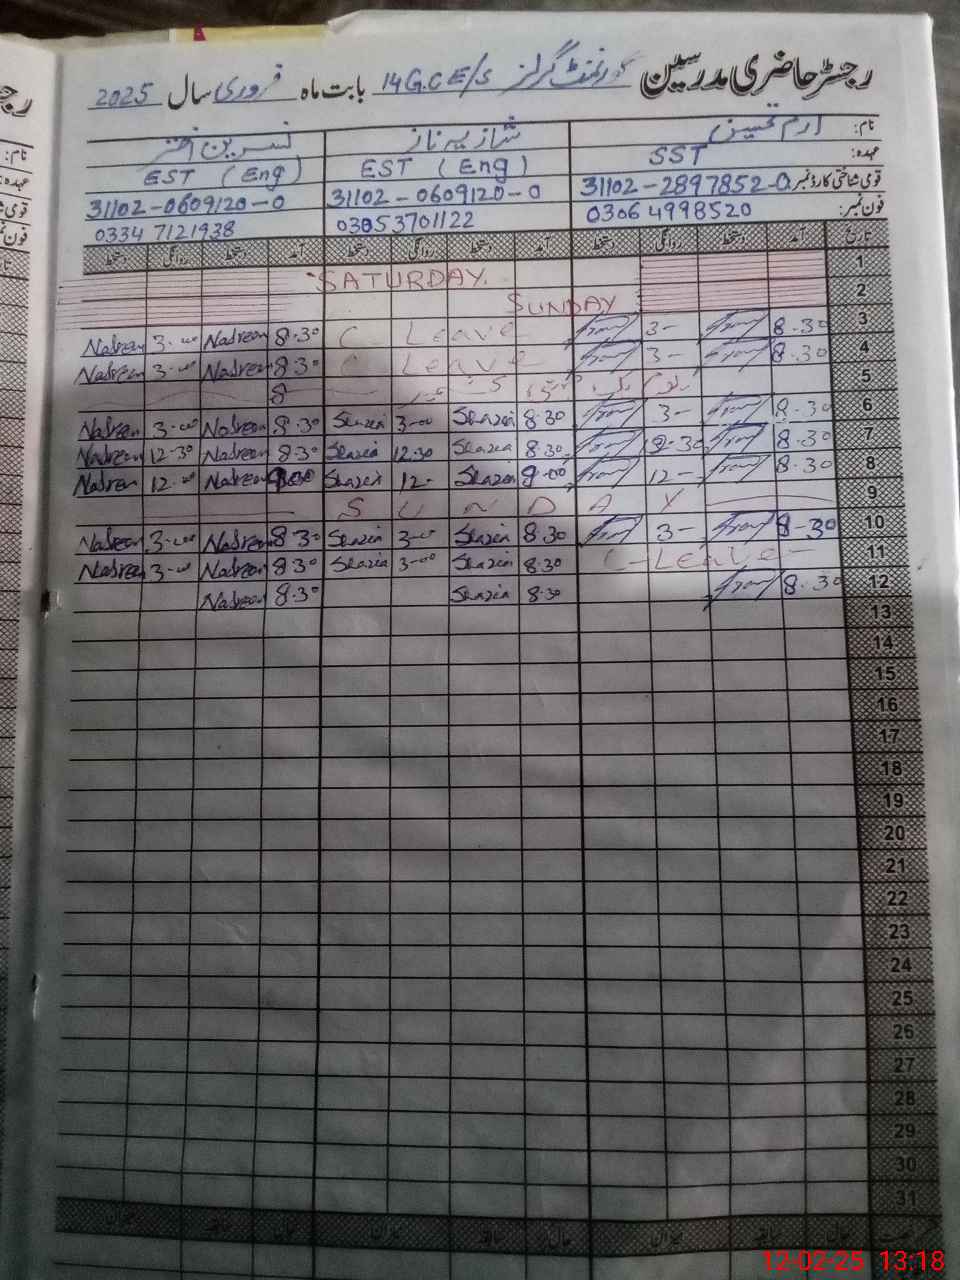 رجسٹر حاضری مدرسین گورنمنٹ گرلز 14 G.C E/S بابت ماہ فروری سال 2025
نام: ارم تحسین شازیہ ناز نسرین اختر
عہدہ: SST EST (Eng) EST (Eng)
قومی شناختی کارڈ نمبر 31102-2897852-0 31102-0609120-0 31102-0609120-0
فون نمبر: 03064998520 03053701122 0334 7121938
تاریخ آمد دستخط روانگی دستخط آمد دستخط روانگی دستخط آمد دستخط روانگی دستخط
1 SATURDAY.
2 SUNDAY
3 8.30 3- C Leave 8.30 Nasreen 3.00 Nasreen
4 8.30 3- C Leave 8.30 Nasreen 3.00 Nasreen
5 یوم یکجہتی کشمیر 8
6 8.30 3- 8.30 Shazia 3-00 Shazia 8.30 Nasreen 3.00 Nasreen
7 8.30 12-30 8.30 Shazia 12.30 Shazia 8.30 Nasreen 12-30 Nasreen
8 8.30 12- 9.00 Shazia 12- Shazia Nasreen 12.00 Nasreen
9 SUNDAY
10 8-30 3- 8.30 Shazia 3-00 Shazia 8.30 Nasreen 3.00 Nasreen
11 C-Leave- 8.30 Shazia 3-00 Shazia 8.30 Nasreen 3.00 Nasreen
12 8.30 8.30 Shazia 8.30 Nasreen
13
14
15
16
17
18
19
20
21
22
23
24
25
26
27
28
29
30
31
حال سابقہ میزان حال سابقہ میزان حال سابقہ میزان
12-02-25 13:18